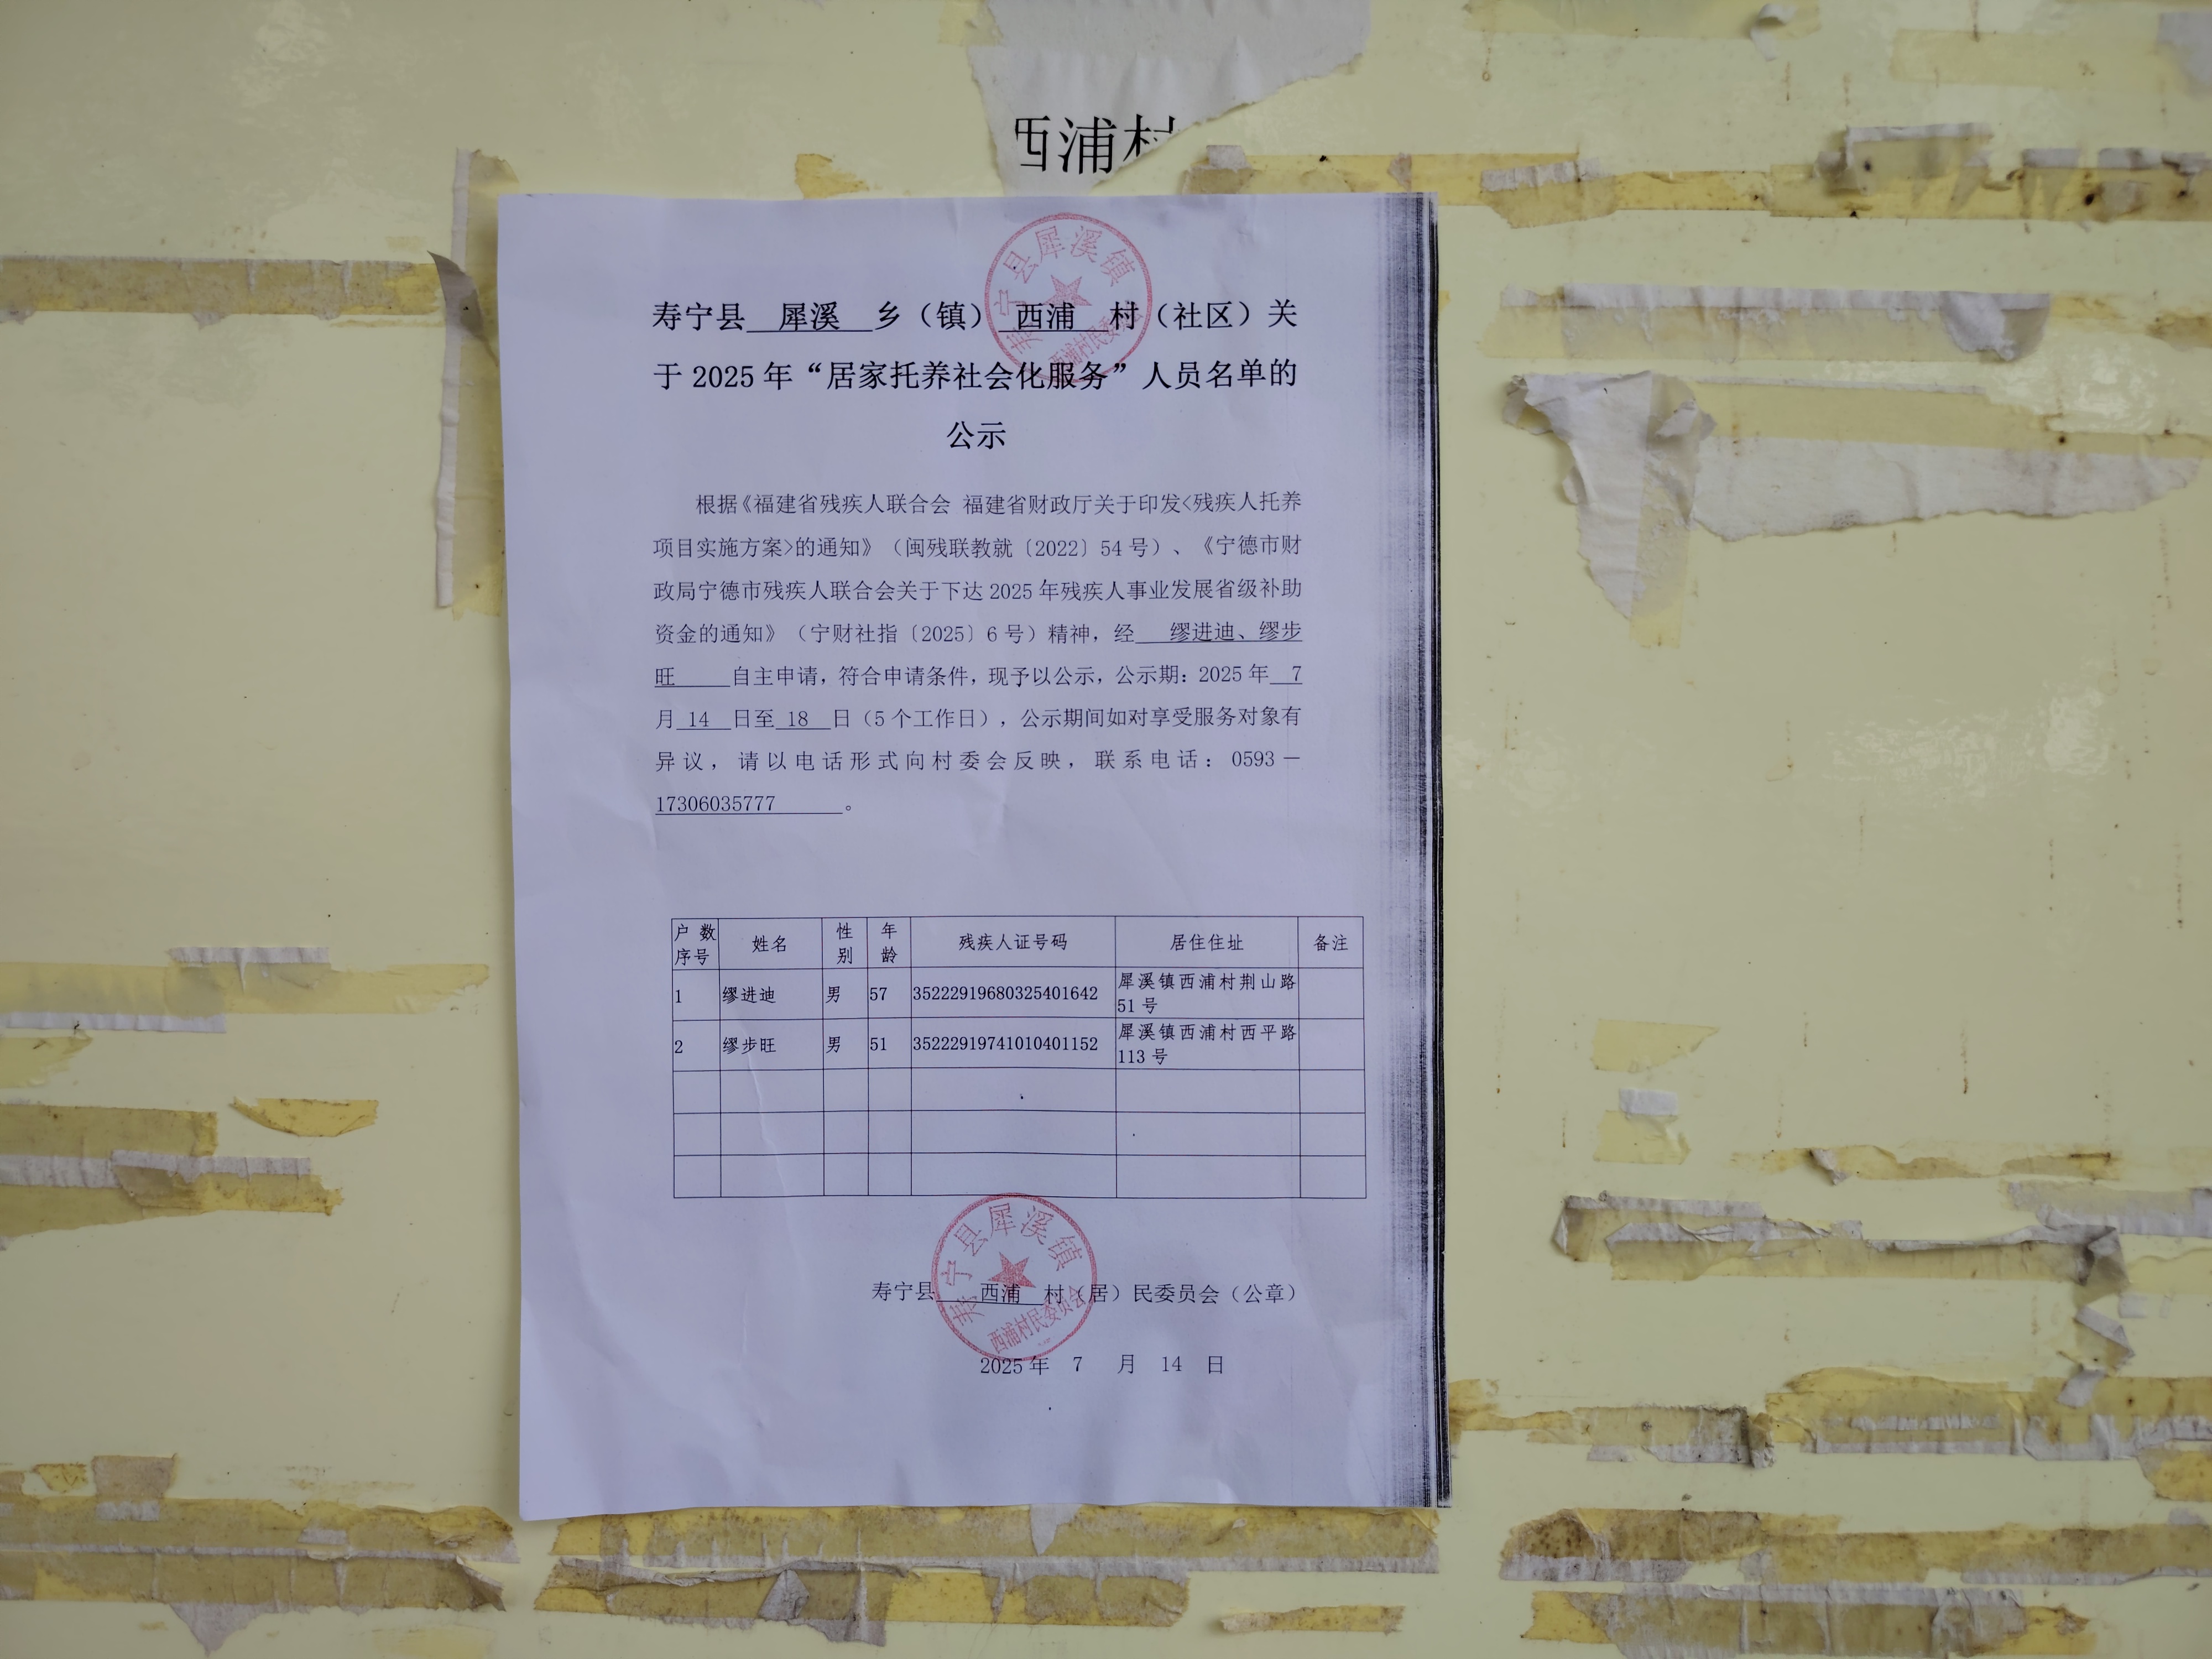 西浦村
寿宁县 犀溪 乡（镇） 西浦 村（社区）关
于 2025 年“居家托养社会化服务”人员名单的
公示
根据《福建省残疾人联合会 福建省财政厅关于印发<残疾人托养
项目实施方案>的通知》（闽残联教就〔2022〕54 号）、《宁德市财
政局宁德市残疾人联合会关于下达 2025 年残疾人事业发展省级补助
资金的通知》（宁财社指〔2025〕6 号）精神，经 缪进迪、缪步
旺 自主申请，符合申请条件，现予以公示，公示期：2025 年 7
月 14 日至 18 日（5 个工作日），公示期间如对享受服务对象有
异议，请以电话形式向村委会反映，联系电话：0593－
17306035777 。
户数序号 姓名 性别 年龄 残疾人证号码 居住住址 备注
1 缪进迪 男 57 35222919680325401642 犀溪镇西浦村荆山路51号
2 缪步旺 男 51 35222919741010401152 犀溪镇西浦村西平路113号
寿宁县 西浦 村（居）民委员会（公章）
2025 年 7 月 14 日
寿宁县犀溪镇
西浦村民委员会
寿宁县犀溪镇
西浦村民委员会